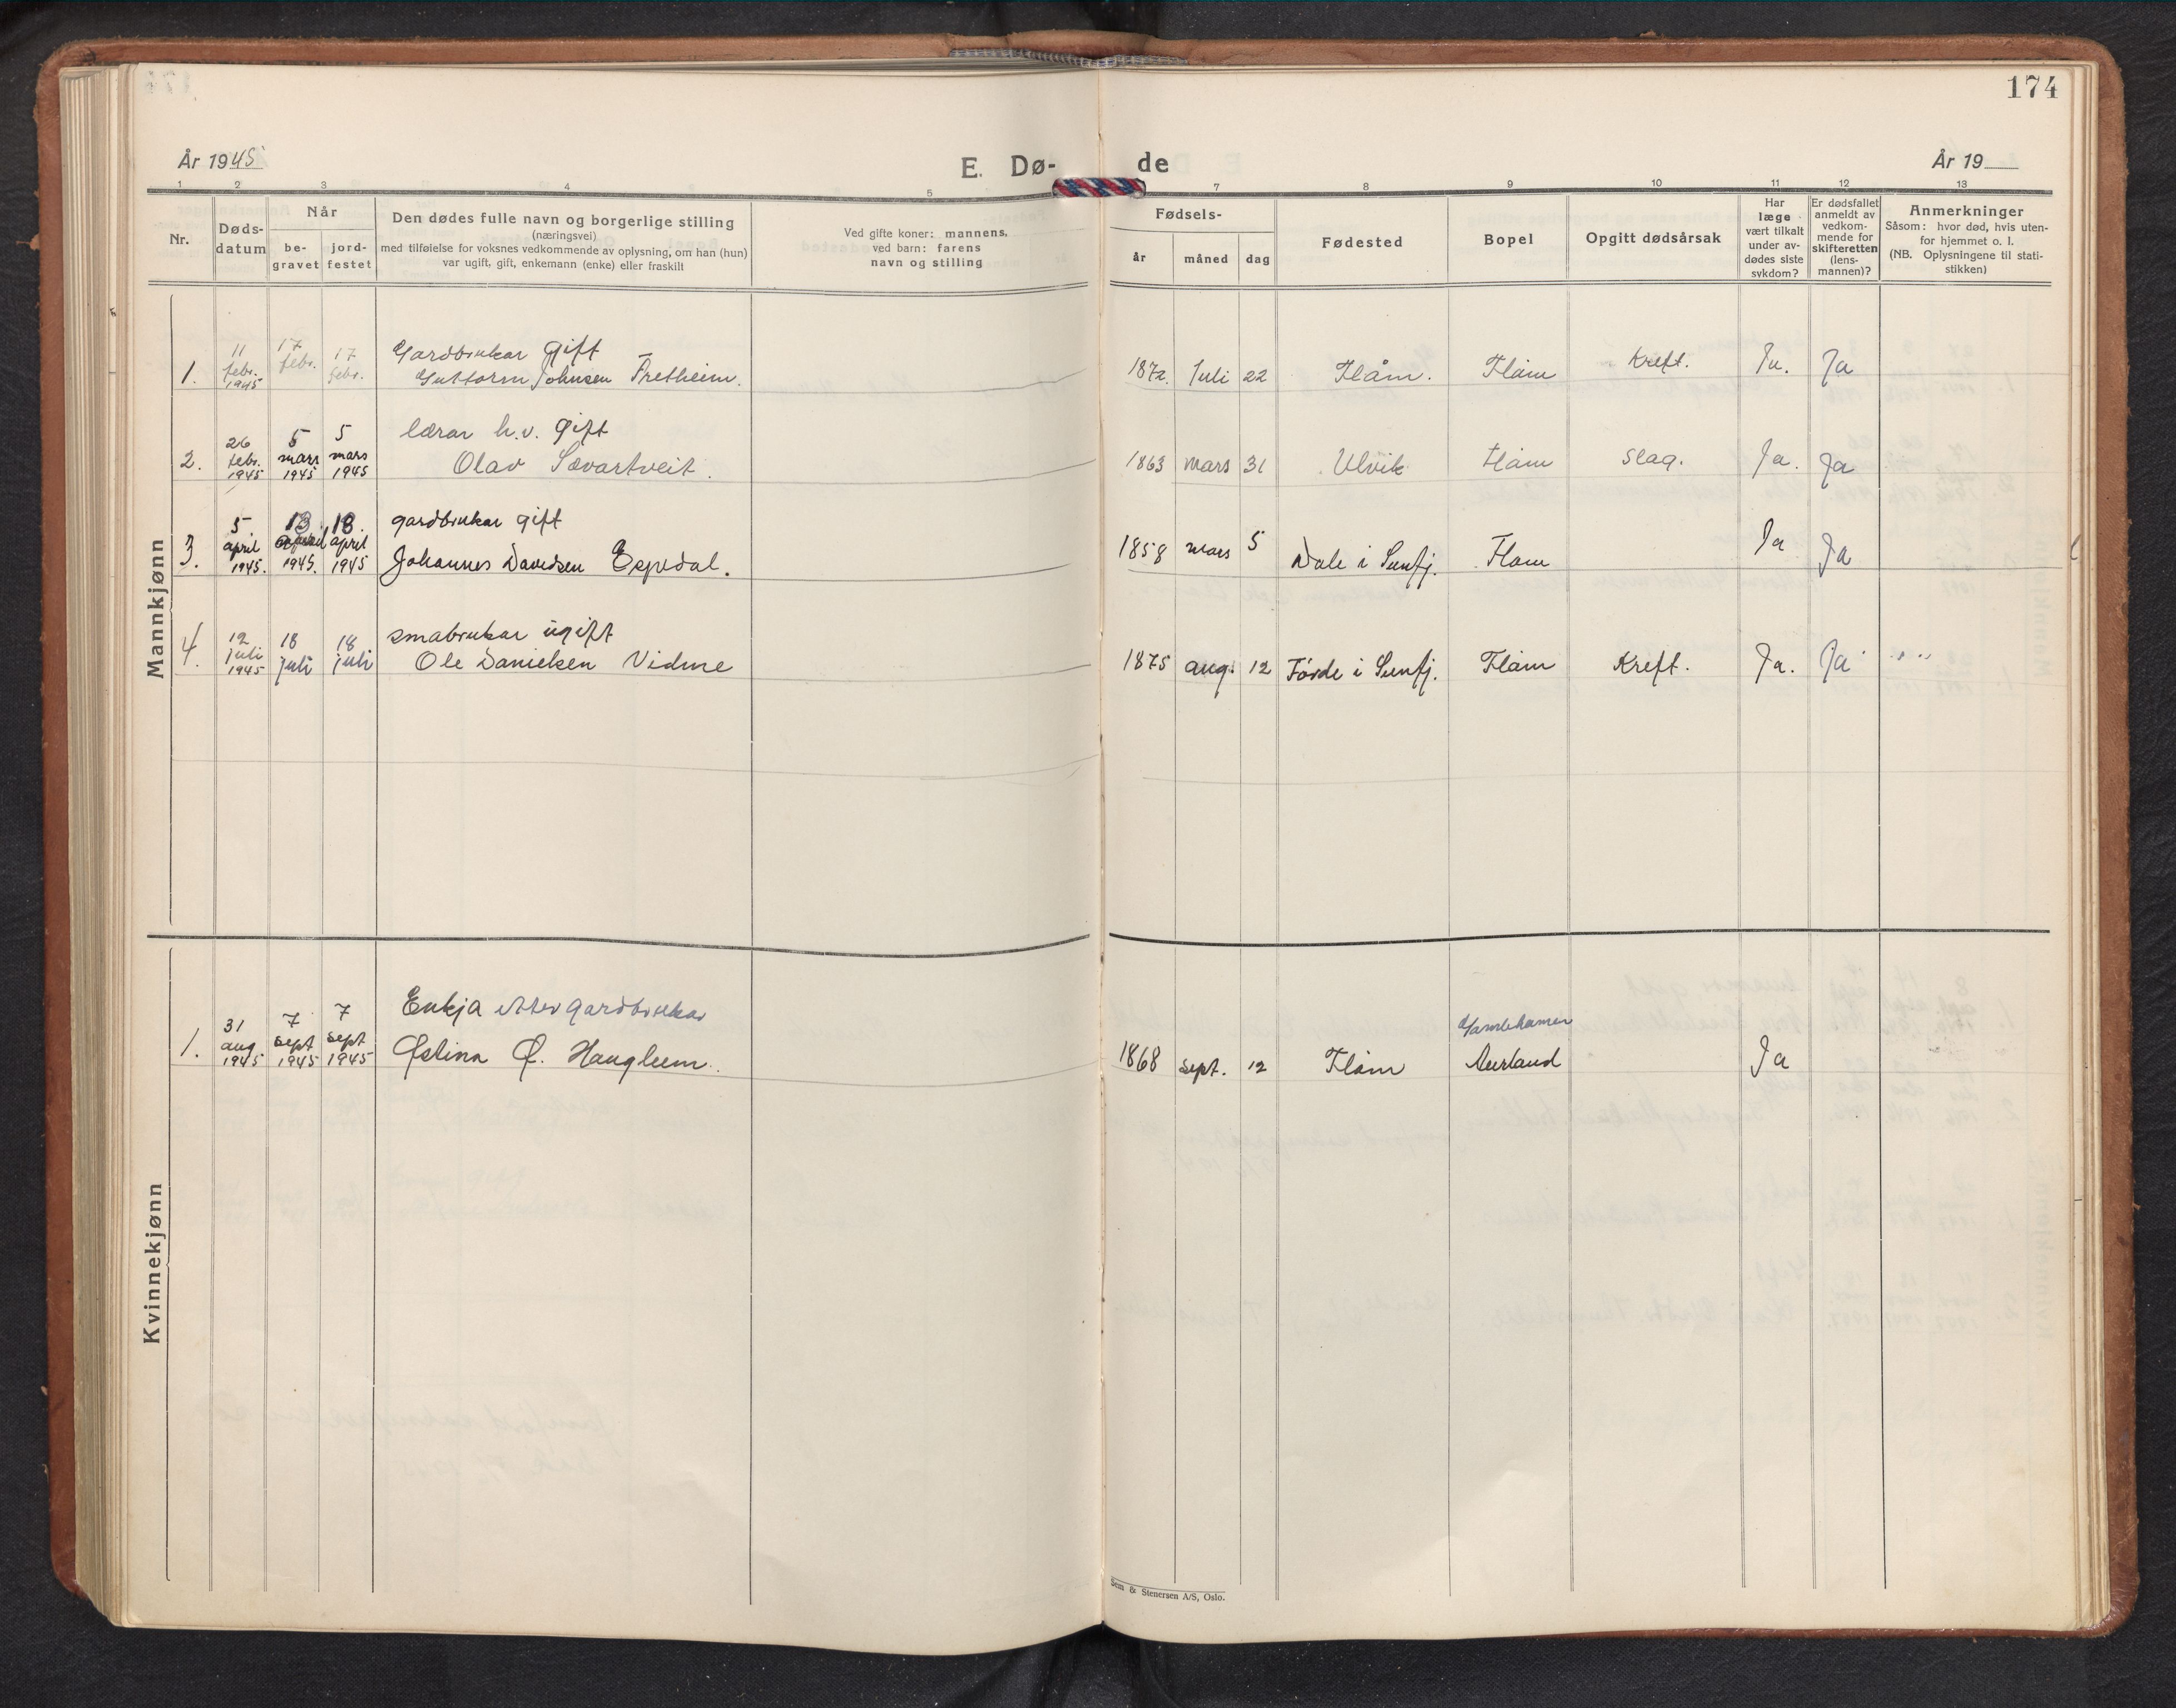 174
År 1945
E. Dø-
de
År 19
1 2 3 4 5 7 8 9 10 11 12 13
Nr.
Døds-
datum
Når
be-
gravet
jord-
festet
Den dødes fulle navn og borgerlige stilling
(næringsvei)
med tilføielse for voksnes vedkommende av oplysning, om han (hun)
var ugift, gift, enkemann (enke) eller fraskilt
Ved gifte koner: mannens,
ved barn: farens
navn og stilling
Fødsels-
år
måned
dag
Fødested
Bopel
Opgitt dødsårsak
Har
læge
vært tilkalt
under av-
dødes siste
sykdom?
Er dødsfallet
anmeldt av
vedkom-
mende for
skifteretten
(lens-
mannen)?
Anmerkninger
Såsom: hvor død, hvis uten-
for hjemmet o. l.
(NB. Oplysningene til stati-
stikken)
Mannkjønn
1.
11
febr.
1945
17
febr.
17
febr.
Gardbrukar gift
Guttorm Johnsen Fretheim.
1872. Juli 22 Flåm. Flåm Kreft. Ja. Ja
2.
26
febr.
1945
5
mars
1945
5
mars
1945
lærar h.v. gift
Olav Sævartveit.
1863 mars 31 Ulvik Flåm Slag. Ja. Ja
3.
5
april
1945.
13
april
1945.
18.
april
1945
gardbrukar gift
Johannes Davidsen Espedal.
1858 mars 5 Dale i Sunfj. Flåm Ja Ja
4.
12
juli
1945
18
juli
18
juli
småbrukar ugift
Ole Danielsen Vidme
1875 aug. 12 Førde i Sunfj. Flåm Kreft. Ja. Ja
Kvinnekjønn
1.
31
aug
1945
7
sept
1945
7
sept
1945
Enkja etter gardbrukar
Østina Ø. Haugleum.
1868 sept. 12 Flåm
Aurland Ja
Sem & Stenersen A/S, Oslo.